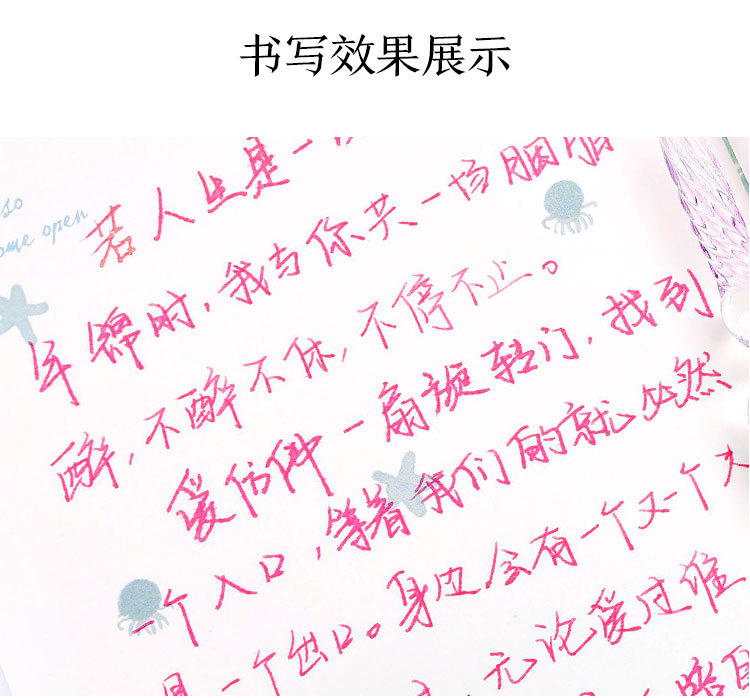 书写效果展示
so
ome open
若人生是一
年锦时,我与你共一场胭脂
醉,不醉不休,不停不止。
爱仿佛一扇旋转门,找到
一个入口,等着我们的就必然
是一个出口。身边会有一个又一个
,无论爱过谁